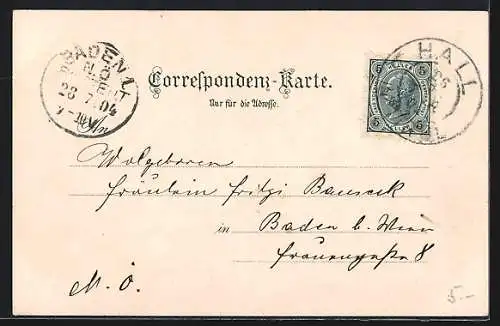 BADEN
N.Ö.
28 7 04
HALL
5 5
5 5
Correspondenz-Karte.
Nur für die Adresse.
Wolgeboren
Fräulein Fritzi
in Baden b. Wien
Frauengasse 8
N. Ö.
5.-